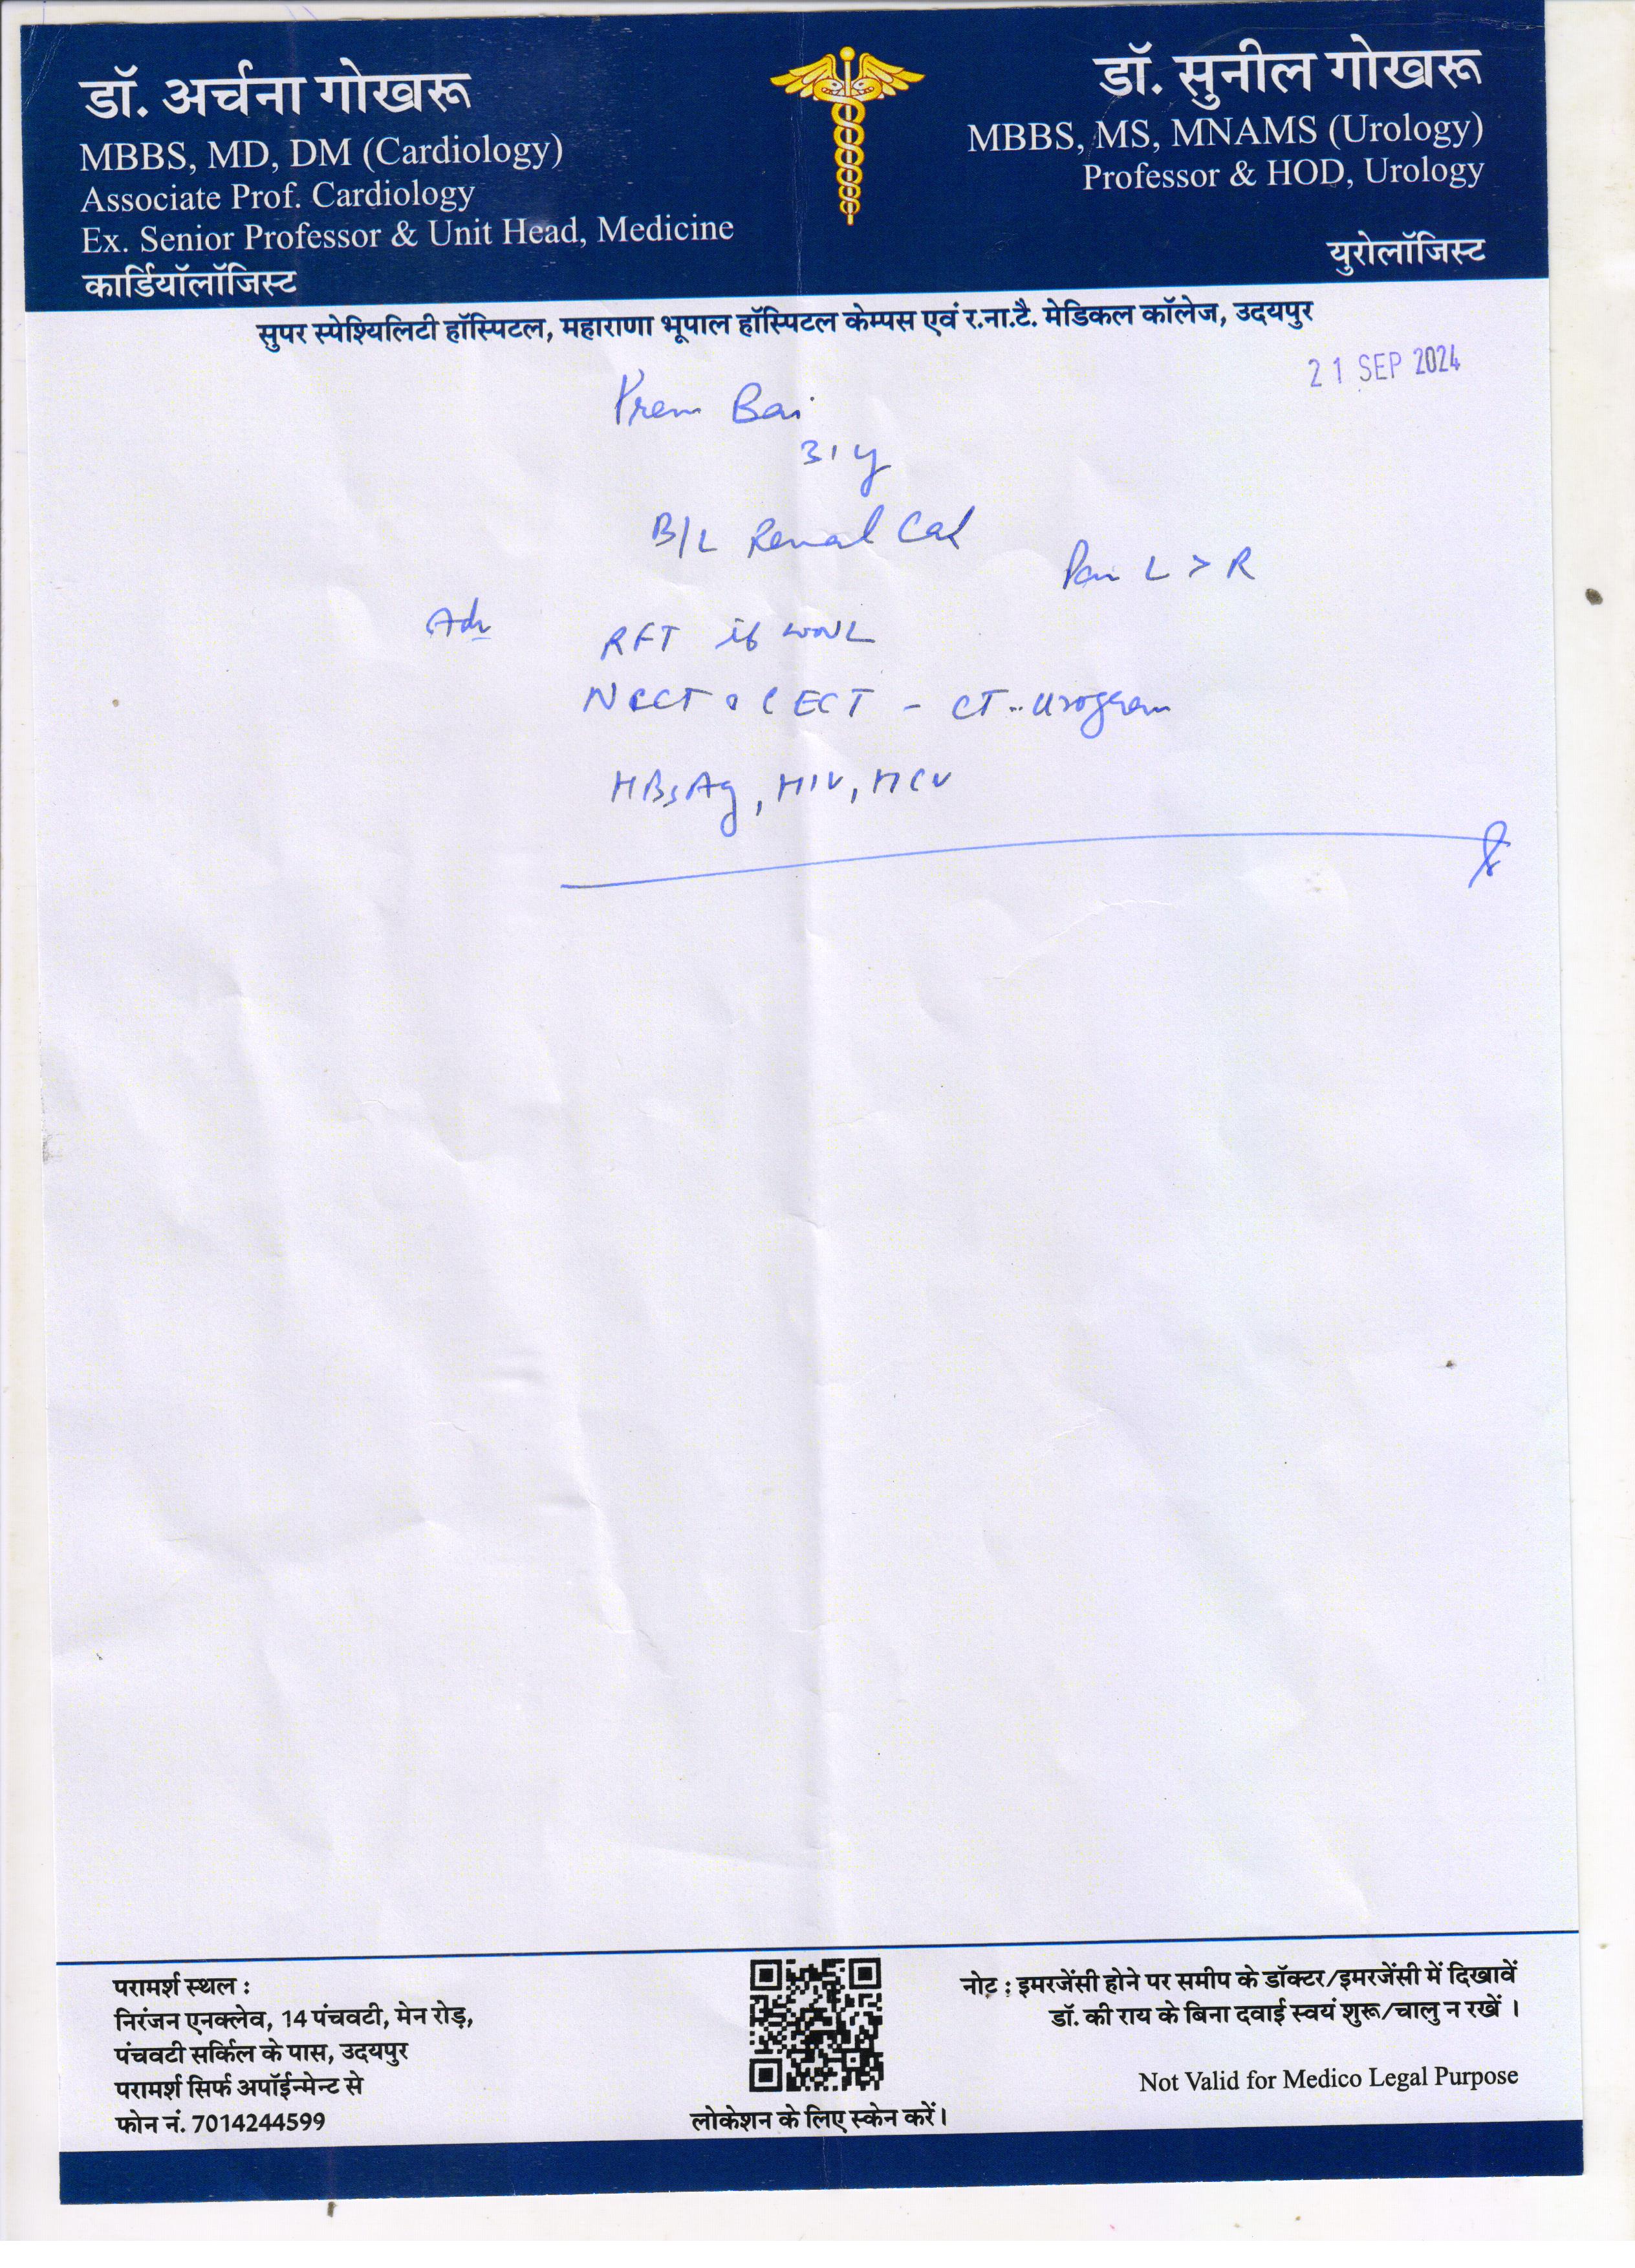 डॉ. अर्चना गोखरू
MBBS, MD, DM (Cardiology)
Associate Prof. Cardiology
Ex. Senior Professor & Unit Head, Medicine
कार्डियॉलॉजिस्ट
डॉ. सुनील गोखरू
MBBS, MS, MNAMS (Urology)
Professor & HOD, Urology
युरोलॉजिस्ट
सुपर स्पेश्यिलिटी हॉस्पिटल, महाराणा भूपाल हॉस्पिटल केम्पस एवं र.ना.टै. मेडिकल कॉलेज, उदयपुर
21 SEP 2024
Prem Bai
31 y
B/L Renal Cal
Pain L > R
Adv
RFT if WNL
NCCT CECT - CT-Urogram
HBsAg, HIV, HCV
परामर्श स्थल :
निरंजन एनक्लेव, 14 पंचवटी, मेन रोड़,
पंचवटी सर्किल के पास, उदयपुर
परामर्श सिर्फ अपॉईन्मेन्ट से
फोन नं. 7014244599
लोकेशन के लिए स्केन करें।
नोट : इमरजेंसी होने पर समीप के डॉक्टर/इमरजेंसी में दिखावें
डॉ. की राय के बिना दवाई स्वयं शुरू/चालु न रखें ।
Not Valid for Medico Legal Purpose